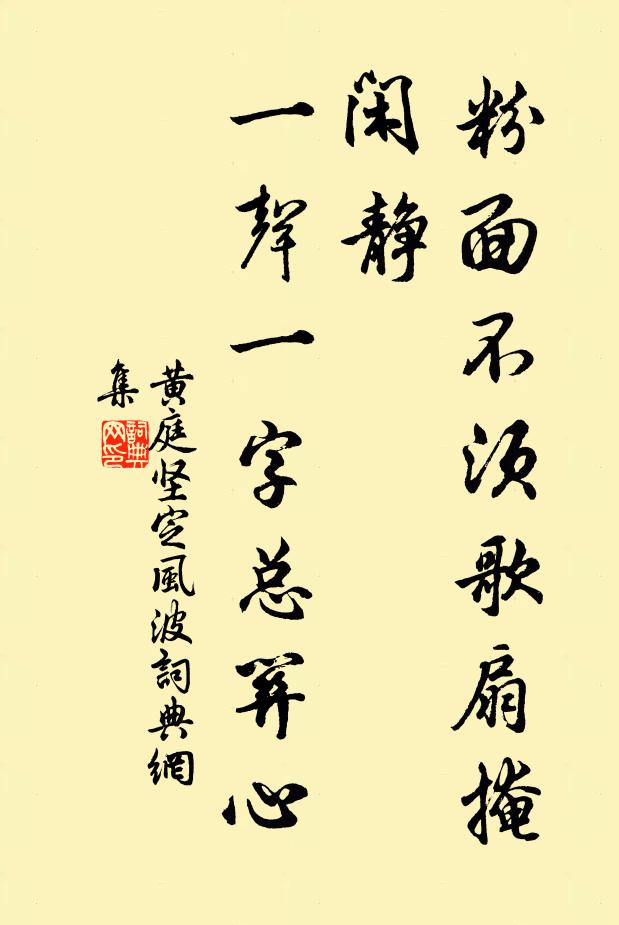 粉面不须歌扇掩
闲静
一声一字总关心
黄庭坚定风波詞典網
集
詞典
网印